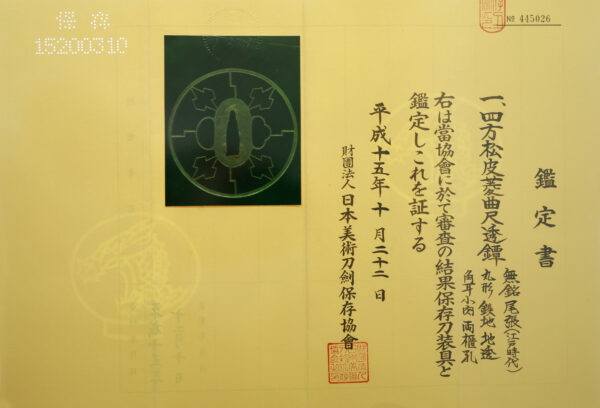 保存
15200310
№ 445026
鑑定書
一、四方松皮菱曲尺透鐔
無銘 尾張(江戸時代)
丸形 鉄地 地透
角耳小肉 両櫃孔
右は當協會に於て審査の結果保存刀装具と
鑑定しこれを証する
平成十五年十月二十二日
財團法人日本美術刀劍保存協會